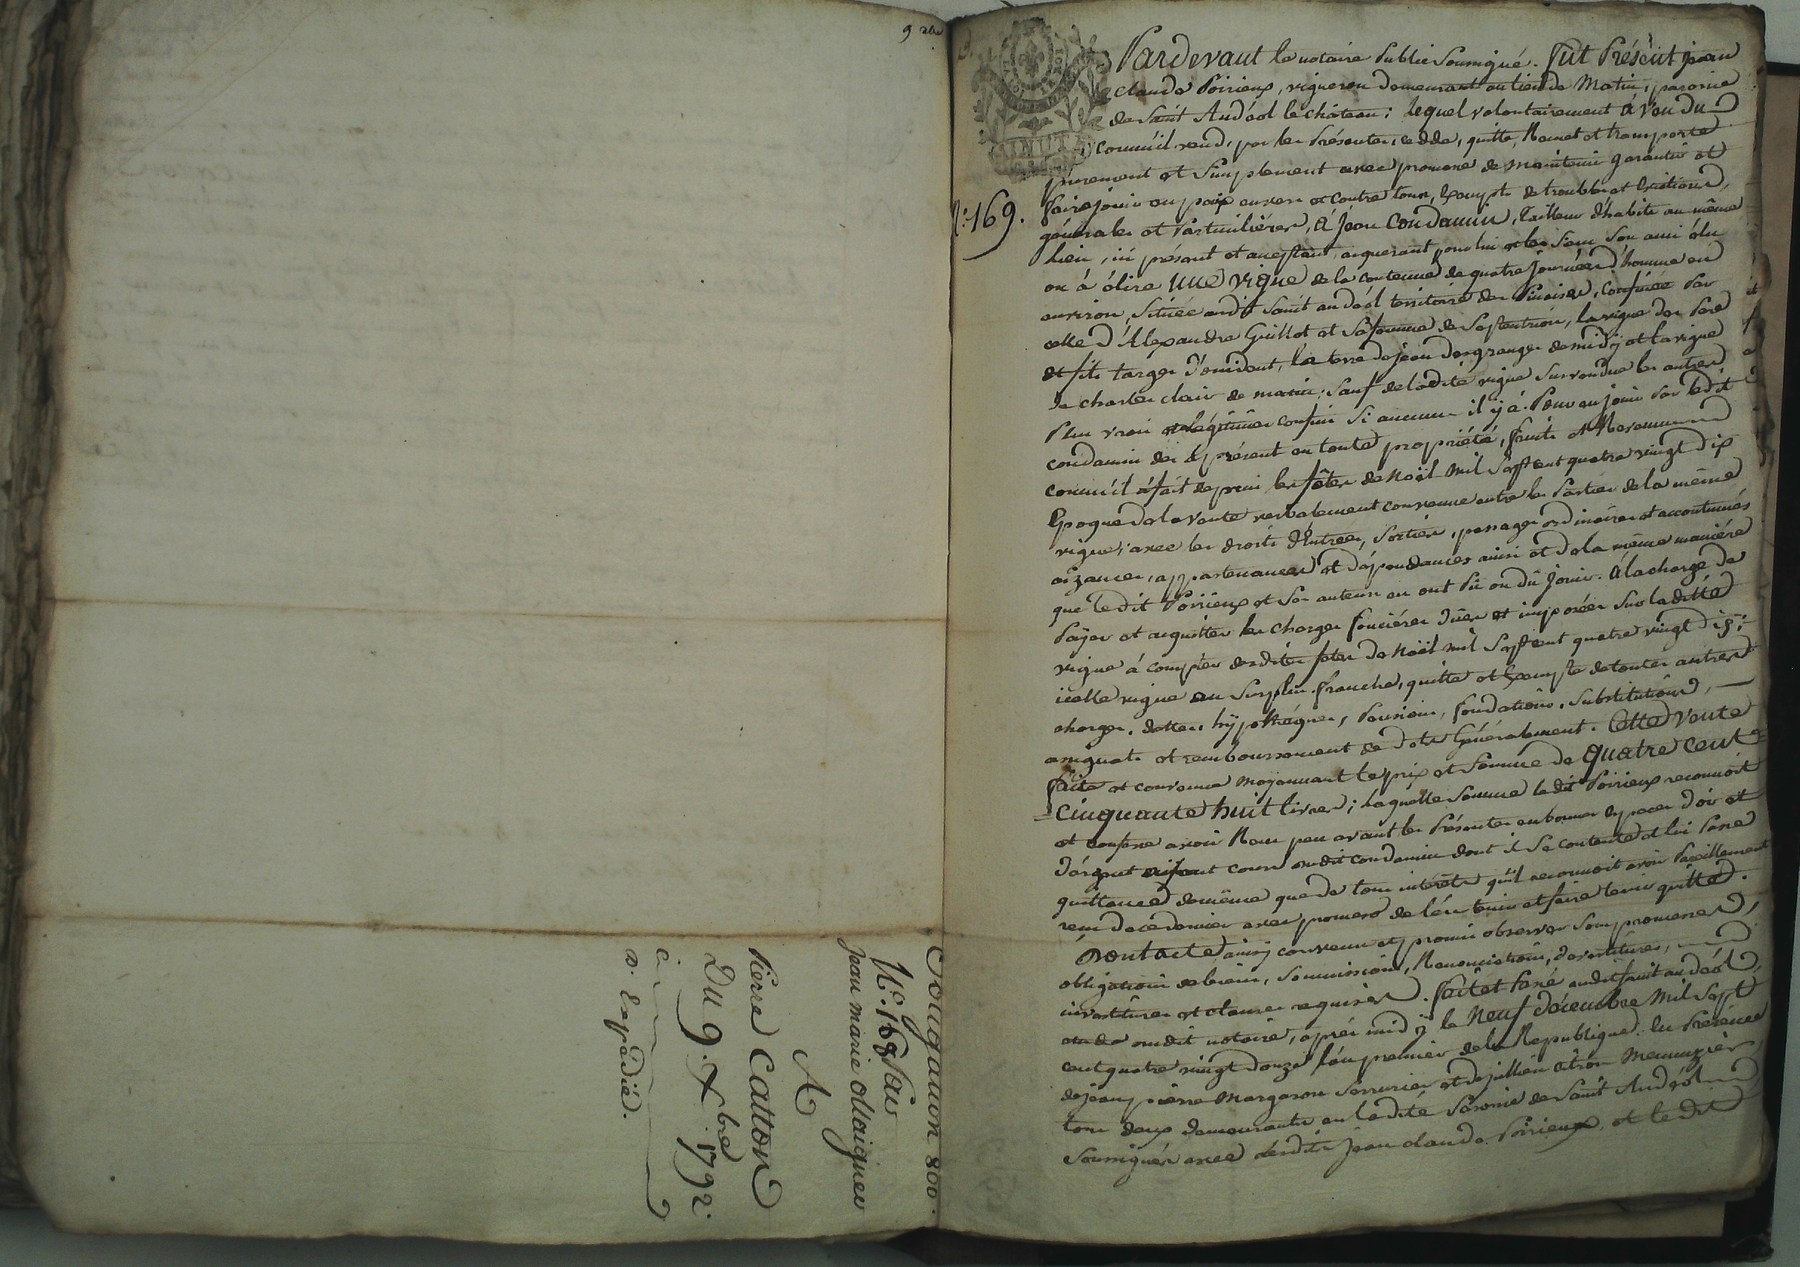 9 xbre
Obligation 800.
N.° 168 par
Jean marie Olaignier
A
Pierre Catton
Du 9. Xbre 1792.
C
D. Expédié.
N.° 169.
Pardevant le notaire Public Soussigné. fut Présent jean
claude Poirieux, vigneron demeurant au lieu de Matin, paroisse
de Saint Andéol le château; lequel volontairement à Vendu
comm'il vend, par les Présentes, cedde, quitte, Remet et transporte
purement et Simplement avec promesse de maintenir garantir et
faire jouir en paix envers et contre tous, Exempte de troubles et Evictions
générales et Particulières, à Jean Condamin, Tailleur d'habits au même
lieu, ici présent et acceptant, acquerant pour lui et les Siens Son ami élu
ou à élire une vigne de la contenue de quatre journées d'homme ou
environ, Située audit Saint andéol territoire des Pinaises, confinée Par
celle d'Alexandre Guillot et Sa femme de Septentrion, la vigne des Père
et fils targes d'occident, la terre de jean desgranges de midÿ et la vigne
de charles clair de matin; Sauf de ladite vigne Survendue les autres
Plus vrais et légitimes confins Si aucuns il ÿ a. Pour en jouir Par ledit
condamin dès à présent en toute propriété, fruits et Revenus
comm'il a fait depuis les fêtes de Noël mil Sept cent quatre vingt dix
Epoque de la Vente verbalement convenue entre les Parties de la même
vigne; avec les droits d'Entrées, Sorties, passages ordinaires et accoutumés
aizances, appartenances et dépendances ainsi et de la même manière
que ledit Poirieux et Ses auteurs en ont Pû ou dû jouir. à la charge de
Paÿer et acquitter les charges foncières dües et imposées Sur la ditte
vigne à compter desdites fêtes de Noël mil Sept cent quatre vingt dix;
icelle vigne au Surplus franche, quitte et Exempte de toutes autres
charges, dettes, hÿpothèques, Pensions, fondations, Substitutions,
assignats et remboursement de dots Généralement. Cette Vente
faite et convenue moÿennant le prix et Somme de quatre cent
cinquante huit livres; laquelle Somme ledit Poirieux reconnoit
et confesse avoir Reçu peu avant les Présentes en bonnes Especes d'or et
d'argent aiÿant cours dudit condamin dont il Se contente et lui Passe
quittance de même que de tous intérêts qu'il reconnoit avoir Pareillement
reçu de ce dernier avec promesse de l'en tenir et faire tenir quitte.
Dont acte ainsÿ convenu et promis observer Sous promesses,
obligations de biens, Soumissions, Renonciations, devestitures,
investitures et clauses requises. fait et Passé audit saint andéol,
étude dudit notaire, après midÿ le Neuf décembre mil Sept
cent quatre vingt douze l'an premier de la République. En Présence
de jean pierre Margaron Serrurier et de jullien atron Menuizier,
tous deux demeurants en la dite Paroisse de Saint Andéol
Soussignés avec lesdits jean claude Poirieux et ledit